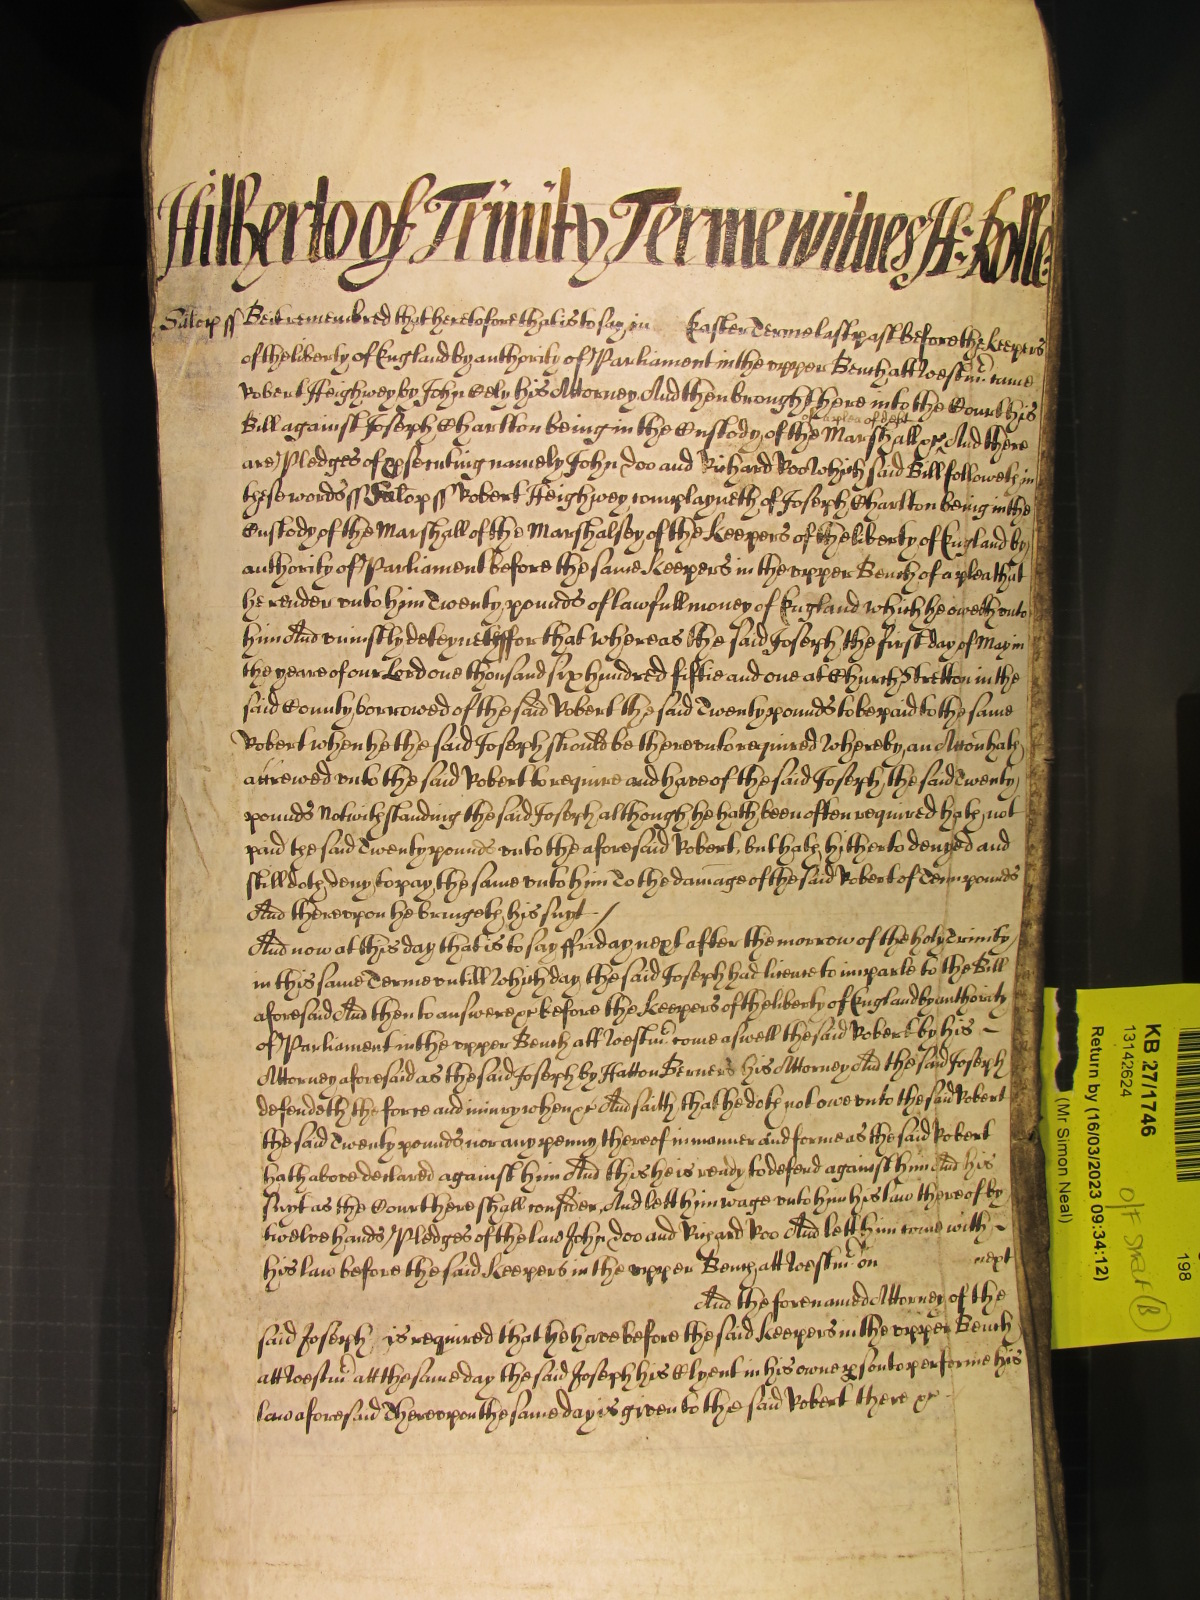 Hitherto of Trinity Terme witnes H: Rolle
Salop ss Be it remembred that heretofore that is to say in Easter Terme last past before the Keepers
of the liberty of England by authority of Parliament in the upper Bench att Westm̃ came
Robert Heighwey by John Eely his Attorney And then brought here into the Court his
of a plea of debt
Bill against Joseph Charlton being in the Custody of the Marshall &c And there
are Pledges of psecuting namely John Doo and Richard Roo Which said Bill followeth in
these words ss Salop ss Robert Heighwey complayneth of Joseph Charlton being in the
Custody of the Marshall of the Marshalsey of the Keepers of the liberty of England by
authority of Parliament before the same Keepers in the upper Bench of a plea that
he render unto him Twenty pounds of lawfull money of England which he oweth unto
him And uniustly deteyneth ffor that whereas the said Joseph the first day of May in
the yeare of our Lord one thousand six hundred fiftie and one at Church Stretton in the
said County borrowed of the said Robert the said Twenty pounds to be paid to the same
Robert when he the said Joseph should be thereunto required Whereby an Accõn hath
accrewed unto the said Robert to require and have of the said Joseph the said Twenty
pounds Notwithstanding the said Joseph although he hath been often required hath not
paid the said Twenty pounds unto the aforesaid Robert, but hath hitherto denyed and
still doth deny to pay the same unto him To the damage of the said Robert of Tenn pounds
And thereupon he bringeth his suyt
And now at this day that is to say ffriday next after the morrow of the holy Trinity
in this same Terme untill Which day the said Joseph had licence to imparle to the Bill
aforesaid And then to answere &c before the Keepers of the liberty of England by authority
of Parliament in the upper Bench att Westm̃ come aswell the said Robert by his
Attorney aforesaid as the said Joseph by Hatton Berners his Attorney And the said Joseph
defendeth the force and iniury when &c And saith that he doth not owe unto the said Robert
the said Twenty pounds nor any penny thereof in manner and forme as the said Robert
hath above declared against him And this he is ready to defend against him And his
suyt as the Court here shall consider, And lett him wage unto him his law thereof by
twelve hands Pledges of the law John Doo and Richard Roo And lett him come with
his law before the said Keepers in the upper Bench att Westm̃ on next
And the forenamed Attorney of the
said Joseph is required that he have before the said Keepers in the upper Bench
att Westm̃ att the same day the said Joseph his Clyent in his owne pson to performe his
law aforesaid Thereupon the same day is given to the said Robert there &c
KB 27/1746
13142624
Return by (16/03/2023 09:34:12)
(Mr Simon Neal)
198